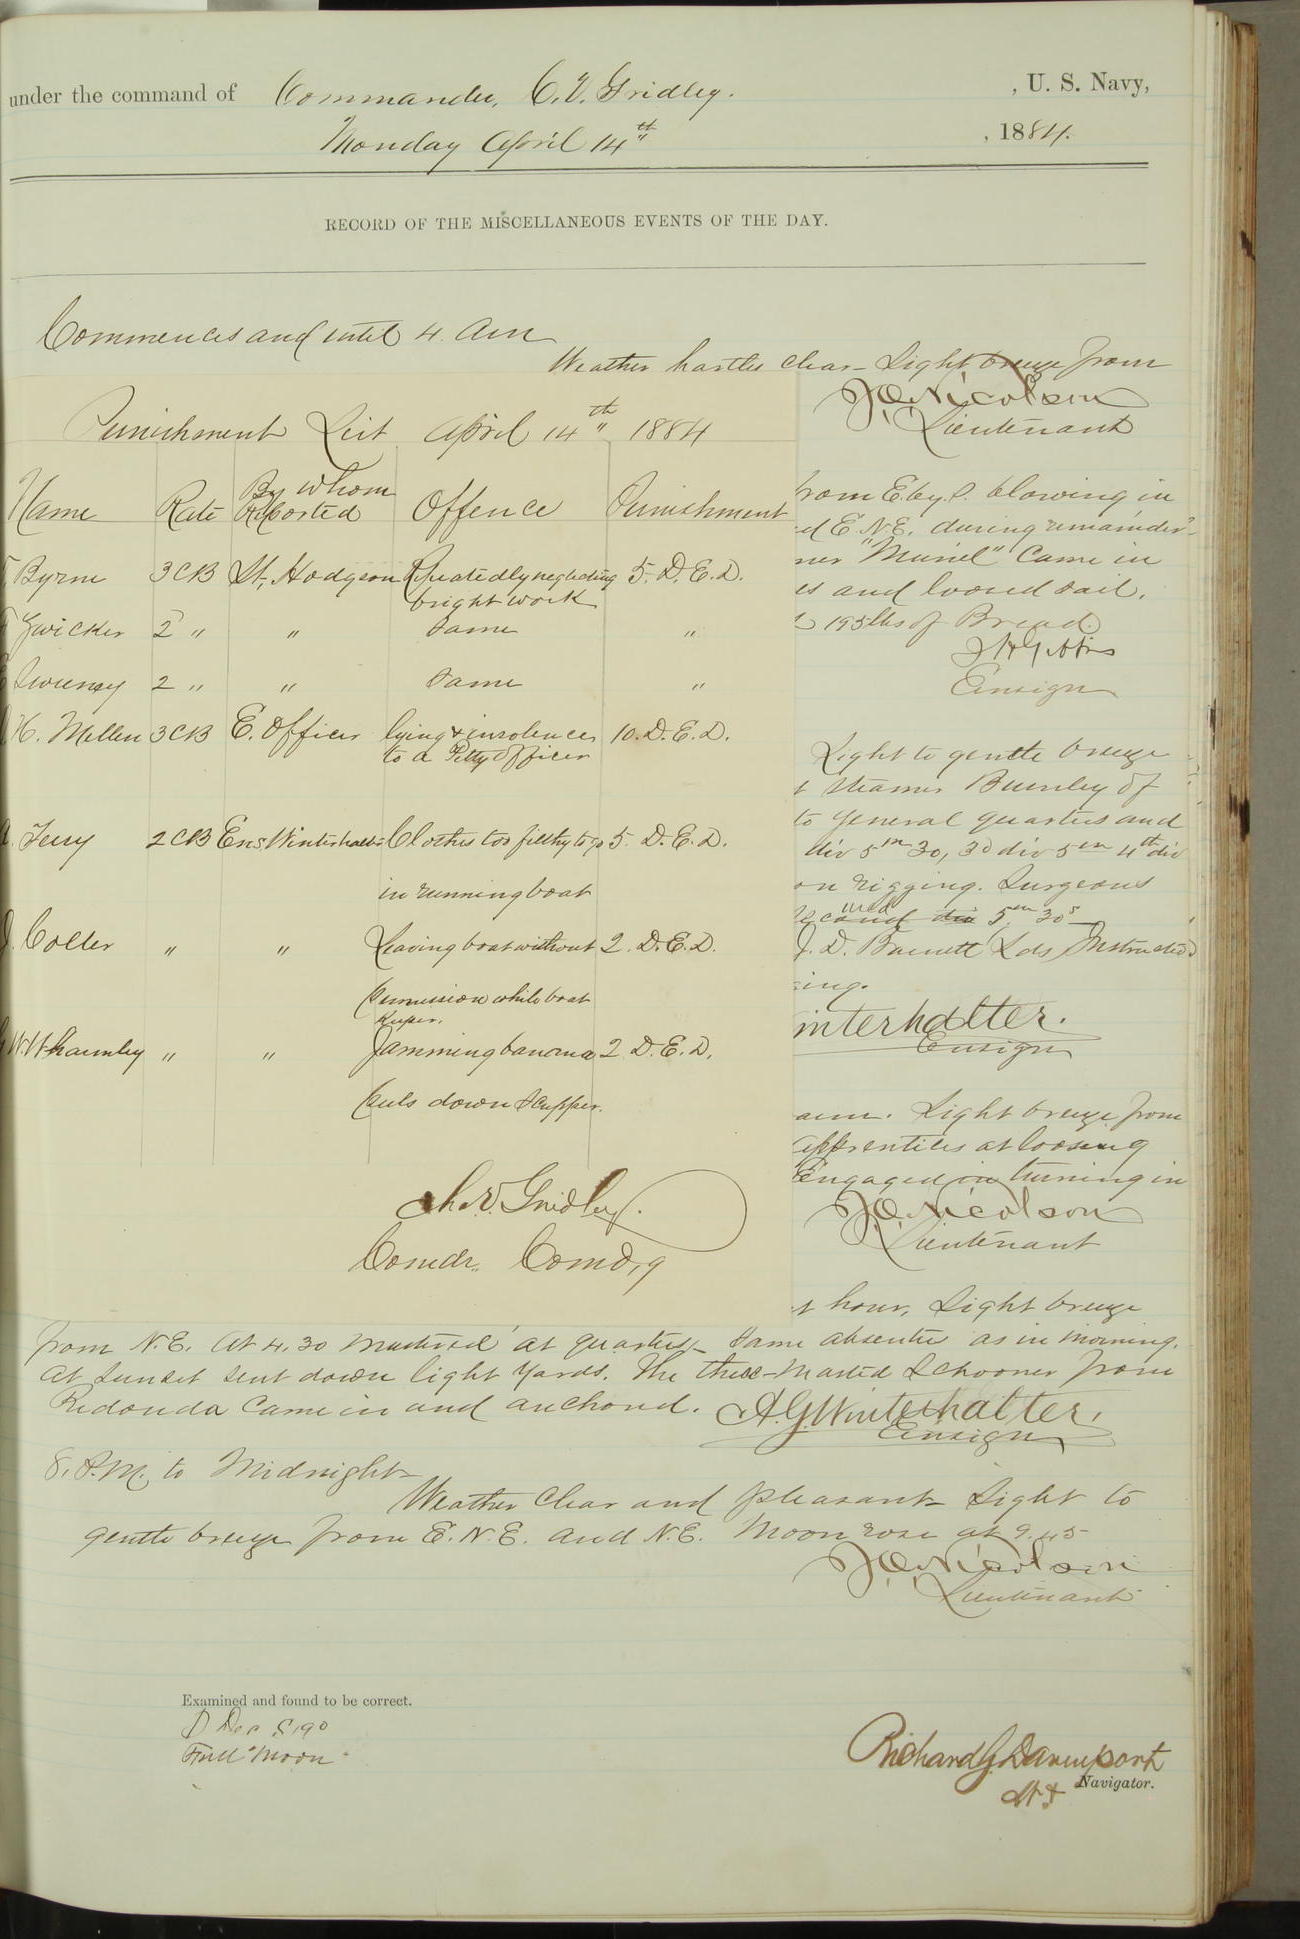 under the command of Commander, C. V. Gridley. , U. S. Navy,
Monday April 14th , 1884.
RECORD OF THE MISCELLANEOUS EVENTS OF THE DAY.
Commences and until 4. Am
Weather clear - Light breeze from
Lieutenant
Punishment List April 14th 1884
Name Rate By whom Reported Offence Punishment
Byrne 3 CB Lt. Hodgson Repeatedly neglecting bright work 5. D. E. D.
Zwicker 2 " " Same "
Sweeney 2 " " Same "
H. Mellen 3 CB E. Officer lying & insolences to a Petty Officer 10. D. E. D.
Terry 2 CB Ens Winterhalter Clothes too filthy to go in running boat 5. D. E. D.
" " Leaving boat without permission while boat keeper. 2. D. E. D.
" " Jamming banana peels down scupper. 2. D. E. D.
Ch. V. Gridley.
Comdr. Comd'g
from E. by S. blowing in
E. N. E. during remainder
"Muriel" came in
and loosed sail.
195 lbs of Bread.
Ensign
Light to gentle breeze
steamer Burnley of
to general quarters and
div 5m 30, 3d div 5m 4th div
on rigging. Surgeons
5m 30s
J. D. Barnett Lds Instructed
ing.
interhalter.
Ensign
Light breeze from
apprentices at loosing
Engaged in turning in
J. O. Nicolson
Lieutenant
hour, Light breeze
from N. E. At 4.30 mustered at quarters - Same absentee as in morning.
At sunset sent down light yards. The three-masted Schooner from
Redonda came in and anchored. A. G. Winterhalter.
Ensign
8. P.M. to Midnight-
Weather clear and pleasant - Light to
gentle breeze from E. N. E. and N. E. Moon rose at 9.45
J. O. Nicolson
Lieutenant
Examined and found to be correct.
Full Moon
Richard G. Davenport
Navigator.